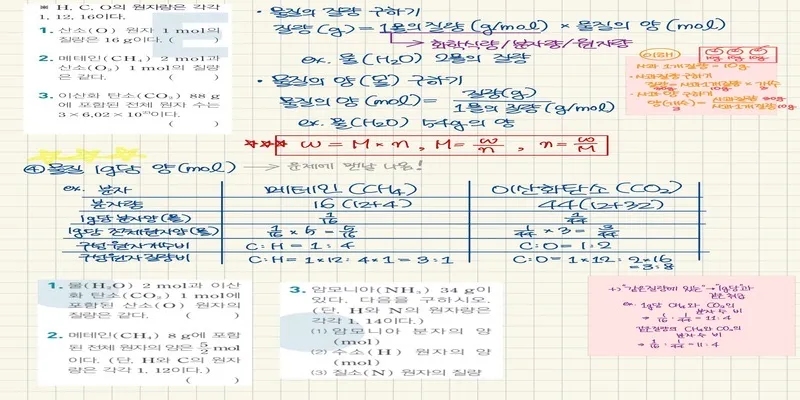 ※ H, C, O의 원자량은 각각
1, 12, 16이다.
1. 산소(O) 원자 1 mol의
질량은 16 g이다. ( )
2. 메테인(CH₄) 2 mol과 산
소(O₂) 1 mol의 질량
은 같다. ( )
3. 이산화 탄소(CO₂) 88 g
에 포함된 전체 원자 수는
3×6.02×10²³이다.
( )
· 물질의 질량 구하기
질량(g) = 1몰의 질량 (g/mol) × 물질의 양 (mol)
→ 화학식량/분자량/원자량
ex. 물(H₂O) 2몰의 질량
· 물질의 양(몰) 구하기
물질의 양 (mol) = 질량(g) / 1몰의 질량 (g/mol)
ex. 물(H₂O) 54g의 양
☆☆☆ w = M × n, M = w/n, n = w/M
이해
10g 10g 10g
사과 1개 질량 = 10g
· 사과 질량 구하기
질량 = 사과 1개 질량 × 개수
· 사과 양 구하기
양(개수) = 사과 질량 30g / 사과 1개 질량 10g
3
④ 물질 1g당 양(mol) → 문제에 맨날 나옴!
ex. 분자 메테인 (CH₄) 이산화탄소 (CO₂)
분자량 16 (12+4) 44 (12+32)
1g당 분자양(몰) 1/16 1/44
1g당 전체원자양(몰) 1/16 × 5 = 5/16 1/44 × 3 = 3/44
구성원자개수비 C:H = 1:4 C:O = 1:2
구성원자질량비 C:H = 1×12 : 4×1 = 3:1 C:O = 1×12 : 2×16
= 3:8
1. 물(H₂O) 2 mol과 이산
화 탄소(CO₂) 1 mol에
포함된 산소(O) 원자의
질량은 같다. ( )
2. 메테인(CH₄) 8 g에 포함
된 전체 원자의 양은 5/2 mol
이다. (단, H와 C의 원자
량은 각각 1, 12이다.)
( )
3. 암모니아(NH₃) 34 g이
있다. 다음을 구하시오.
(단, H와 N의 원자량은
각각 1, 14이다.)
(1) 암모니아 분자의 양
(mol)
(2) 수소(H) 원자의 양
(mol)
(3) 질소(N) 원자의 질량
"같은질량에 있는" → 1g당과
같은 처럼
ex. 1g당 CH₄와 CO₂의
분자 수 비
⇒ 1/16 : 1/44 = 11:4
같은질량의 CH₄와 CO₂의
분자수비
⇒ 1/16 : 1/44 = 11:4